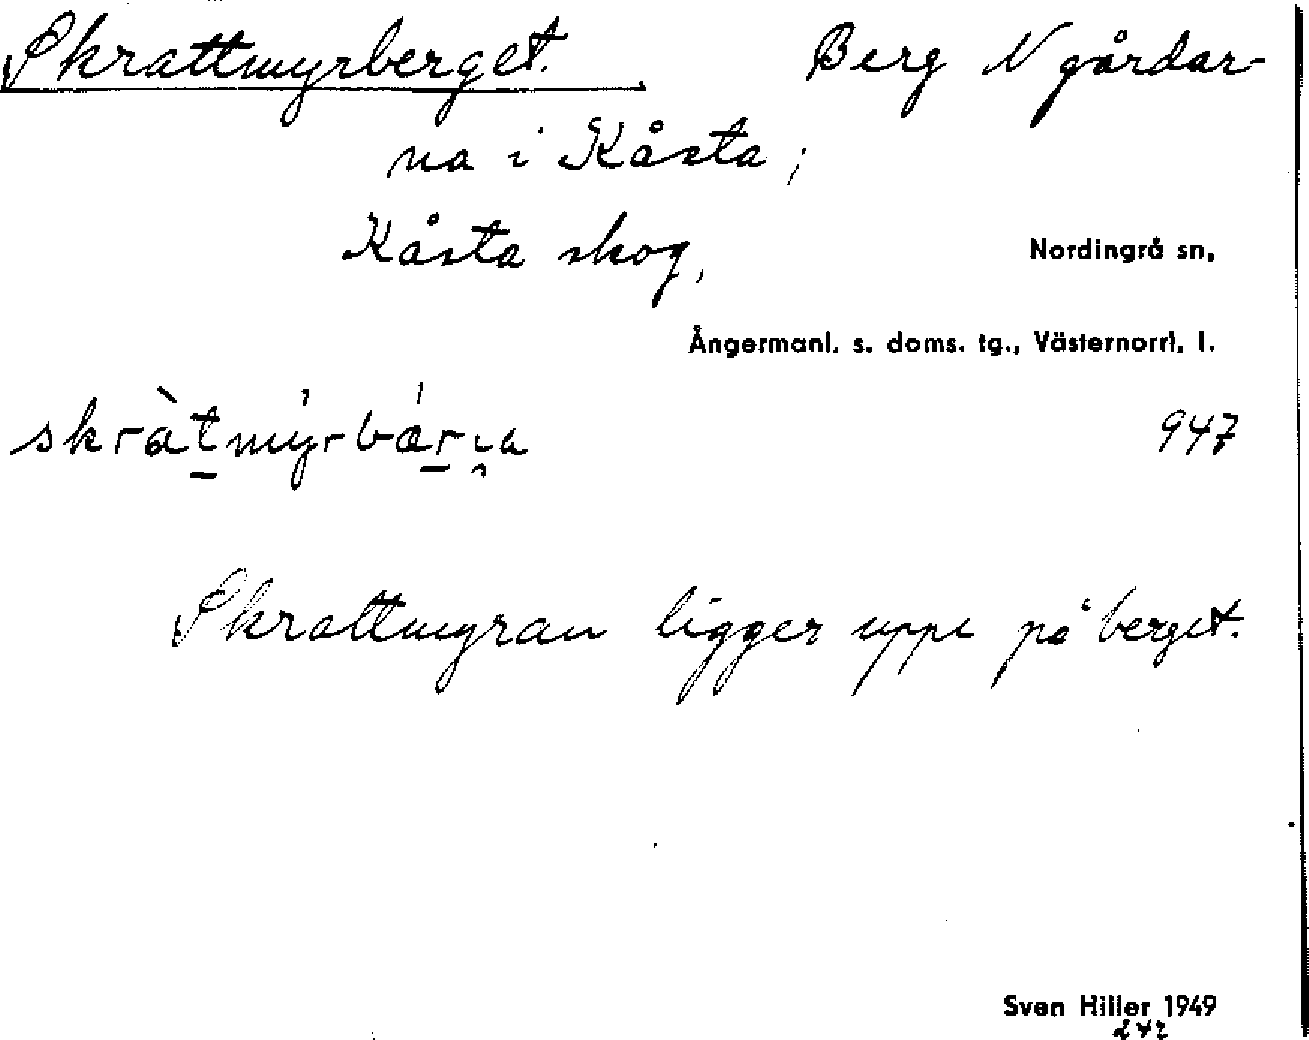 Skrattmyrberget. Berg N gårdar-
na i Kåsta;
Kåsta skog,
Nordingrå sn,
Ångermanl. s. doms. tg., Västernorrl. l.
skràt̠mýrbár̠ı̯a 947
Skrattmyran ligger uppe på berget.
Sven Hiller 1949
242